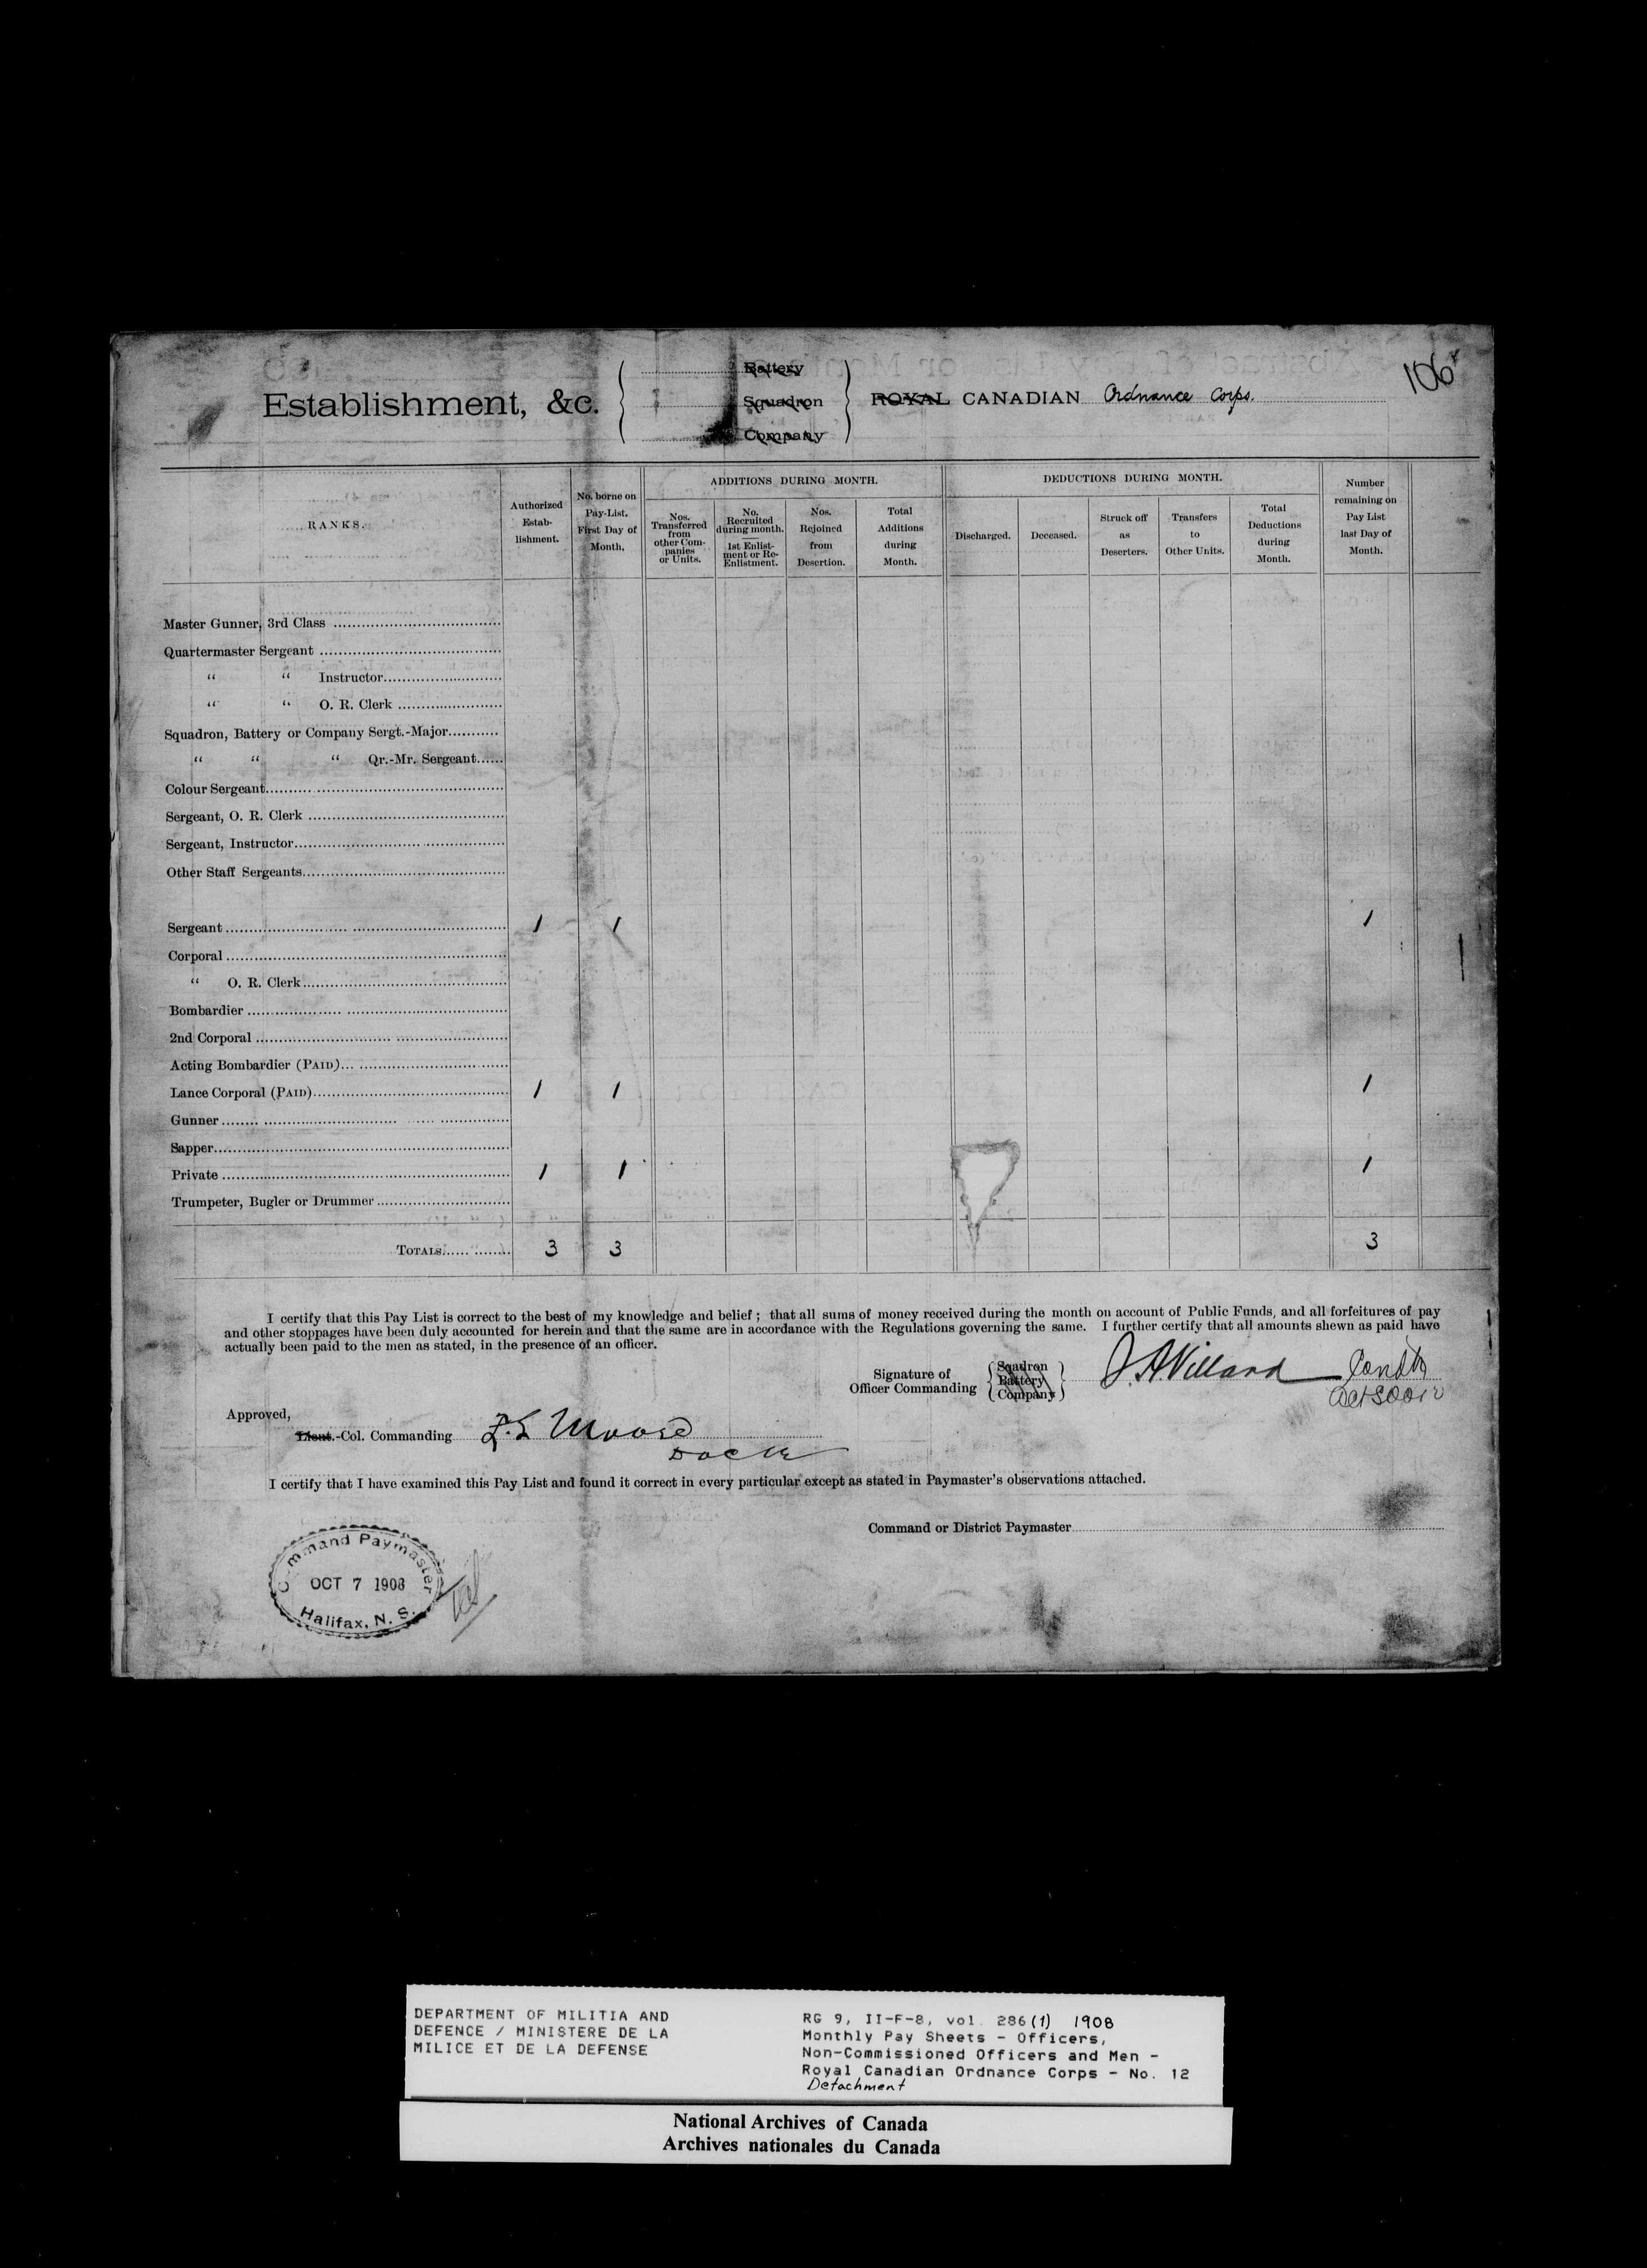 106
Establishment, &c. Battery Squadron Company ROYAL CANADIAN Ordnance Corps.
RANKS.
Authorized Estab-lishment.
No. borne on Pay-List. First Day of Month.
ADDITIONS DURING MONTH.
Nos. Transferred from other Com-panies or Units.
No. Recruited during month. 1st Enlist-ment or Re-Enlistment.
Nos. Rejoined from Desertion.
Total Additions during Month.
DEDUCTIONS DURING MONTH.
Discharged.
Deceased.
Struck off as Deserters.
Transfers to Other Units.
Total Deductions during Month.
Number remaining on Pay List last Day of Month.
Master Gunner, 3rd Class
Quartermaster Sergeant
“ “ Instructor
“ “ O. R. Clerk
Squadron, Battery or Company Sergt.-Major
“ “ “ Qr.-Mr. Sergeant
Colour Sergeant
Sergeant, O. R. Clerk
Sergeant, Instructor
Other Staff Sergeants
Sergeant 1 1 1
Corporal
“ O. R. Clerk
Bombardier
2nd Corporal
Acting Bombardier (PAID)
Lance Corporal (PAID) 1 1 1
Gunner
Sapper
Private 1 1 1
Trumpeter, Bugler or Drummer
TOTALS 3 3 3
I certify that this Pay List is correct to the best of my knowledge and belief ; that all sums of money received during the month on account of Public Funds, and all forfeitures of pay
and other stoppages have been duly accounted for herein and that the same are in accordance with the Regulations governing the same. I further certify that all amounts shewn as paid have
actually been paid to the men as stated, in the presence of an officer.
Signature of Officer Commanding Sqadron Battery Company
Approved,
Lieut.-Col. Commanding
I certify that I have examined this Pay List and found it correct in every particular except as stated in Paymaster's observations attached.
Command or District Paymaster
Command Paymaster
OCT 7 1908
Halifax, N. S.
DEPARTMENT OF MILITIA AND
DEFENCE / MINISTERE DE LA
MILICE ET DE LA DEFENSE
RG 9, II-F-8, vol. 286(1) 1908
Monthly Pay Sheets - Officers,
Non-Commissioned Officers and Men -
Royal Canadian Ordnance Corps - No. 12
Detachment
National Archives of Canada
Archives nationales du Canada